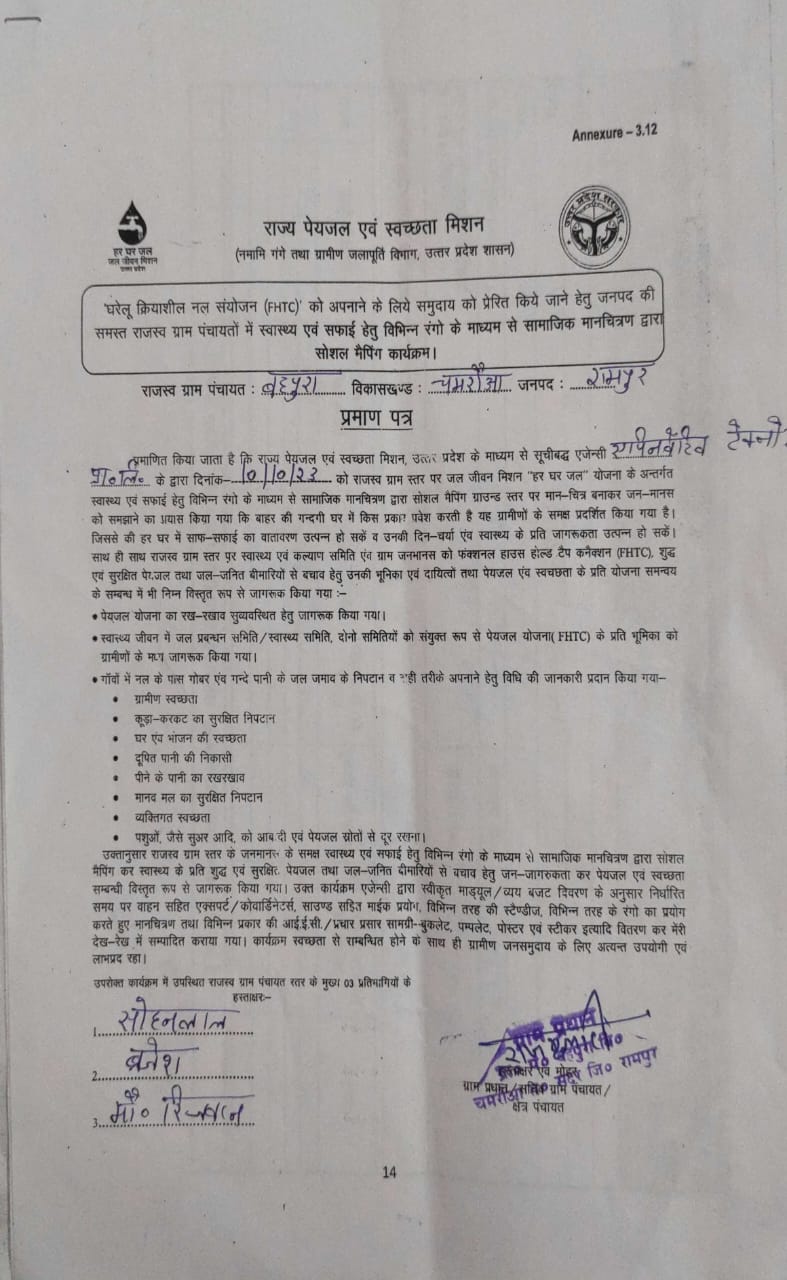 Annexure – 3.12
हर घर जल
जल जीवन मिशन
उत्तर प्रदेश
उत्तर प्रदेश सरकार
राज्य पेयजल एवं स्वच्छता मिशन
(नमामि गंगे तथा ग्रामीण जलापूर्ति विभाग, उत्तर प्रदेश शासन)
'घरेलू क्रियाशील नल संयोजन (FHTC)' को अपनाने के लिये समुदाय को प्रेरित किये जाने हेतु जनपद की
समस्त राजस्व ग्राम पंचायतों में स्वास्थ्य एवं सफाई हेतु विभिन्न रंगो के माध्यम से सामाजिक मानचित्रण द्वारा
सोशल मैपिंग कार्यक्रम।
राजस्व ग्राम पंचायत : बहपुरा विकासखण्ड : चमरौआ जनपद : रामपुर
प्रमाण पत्र
प्रमाणित किया जाता है कि राज्य पेयजल एवं स्वच्छता मिशन, उत्तर प्रदेश के माध्यम से सूचीबद्ध एजेन्सी टेक्नो.
प्रा०लि० के द्वारा दिनांक- को राजस्व ग्राम स्तर पर जल जीवन मिशन "हर घर जल" योजना के अन्तर्गत
स्वास्थ्य एवं सफाई हेतु विभिन्न रंगो के माध्यम से सामाजिक मानचित्रण द्वारा सोशल मैपिंग ग्राउन्ड स्तर पर मान–चित्र बनाकर जन–मानस
को समझाने का प्रयास किया गया कि बाहर की गन्दगी घर में किस प्रकार प्रवेश करती है यह ग्रामीणों के समक्ष प्रदर्शित किया गया है।
जिससे की हर घर में साफ–सफाई का वातावरण उत्पन्न हो सकें व उनकी दिन–चर्या एंव स्वास्थ्य के प्रति जागरूकता उत्पन्न हो सकें।
साथ ही साथ राजस्व ग्राम स्तर पर स्वास्थ्य एवं कल्याण समिति एंव ग्राम जनभानस को फंक्शनल हाउस होल्ड टैप कनैक्शन (FHTC), शुद्ध
एवं सुरक्षित पेयजल तथा जल–जनित बीमारियों से बचाव हेतु उनकी भूमिका एवं दायित्वों तथा पेयजल एंव स्वचछता के प्रति योजना समन्वय
के सम्बन्ध में भी निम्न विस्तृत रूप से जागरूक किया गया :–
• पेयजल योजना का रख–रखाव सुव्यवस्थित हेतु जागरूक किया गया।
• स्वास्थ्य जीवन में जल प्रबन्धन समिति/स्वास्थ्य समिति, दोनो समितियों को संयुक्त रूप से पेयजल योजना( FHTC) के प्रति भूमिका को
ग्रामीणों के मध्य जागरूक किया गया।
• गाँवों में नल के पास गोबर एंव गन्दे पानी के जल जमाव के निपटान व सही तरीके अपनाने हेतु विधि की जानकारी प्रदान किया गया–
• ग्रामीण स्वच्छता
• कूड़ा–करकट का सुरक्षित निपटान
• घर एंव भोजन की स्वच्छता
• दूषित पानी की निकासी
• पीने के पानी का रखरखाव
• मानव मल का सुरक्षित निपटान
• व्यक्तिगत स्वच्छता
• पशुओं, जैसे सुअर आदि, को आबादी एवं पेयजल स्रोतों से दूर रखना।
उक्तानुसार राजस्व ग्राम स्तर के जनमानस के समक्ष स्वास्थ्य एवं सफाई हेतु विभिन्न रंगो के माध्यम से सामाजिक मानचित्रण द्वारा सोशल
मैपिंग कर स्वास्थ्य के प्रति शुद्ध एवं सुरक्षित पेयजल तथा जल–जनित बीमारियों से बचाव हेतु जन–जागरुकता कर पेयजल एवं स्वच्छता
सम्बन्धी विस्तृत रूप से जागरूक किया गया। उक्त कार्यक्रम एजेन्सी द्वारा स्वीकृत माड्यूल/व्यय बजट विवरण के अनुसार निर्धारित
समय पर वाहन सहित एक्सपर्ट/कोवार्डिनेटर्स, साउण्ड सहित माईक प्रयोग, विभिन्न तरह की स्टैण्डीज, विभिन्न तरह के रंगो का प्रयोग
करते हुए मानचित्रण तथा विभिन्न प्रकार की आई.ई.सी./प्रचार प्रसार सामग्री–बुकलेट, पम्पलेट, पोस्टर एवं स्टीकर इत्यादि वितरण कर मेरी
देख–रेख में सम्पादित कराया गया। कार्यक्रम स्वच्छता से सम्बन्धित होने के साथ ही ग्रामीण जनसमुदाय के लिए अत्यन्त उपयोगी एवं
लाभप्रद रहा।
उपरोक्त कार्यक्रम में उपस्थित राजस्व ग्राम पंचायत स्तर के मुख्य 03 प्रतिभागियों के
हस्ताक्षरः–
1. सोहनलाल
2. ब्रनेश
3. मौ० रिजवान
ग्राम प्रधान
हस्ताक्षर एवं मोहर
ग्राम प्रधान/सचिव ग्राम पंचायत/
चमरौआ जि० रामपुर
क्षेत्र पंचायत
14